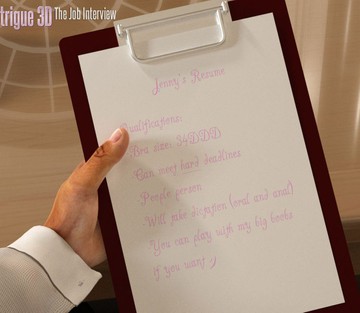 trigue 3D The Job Interview
Jenny's Resume
Qualifications:
Bra size: 34DDD
Can meet hard deadlines
People person
Will take dictation (oral and anal)
You can play with my big boobs
if you want ;)